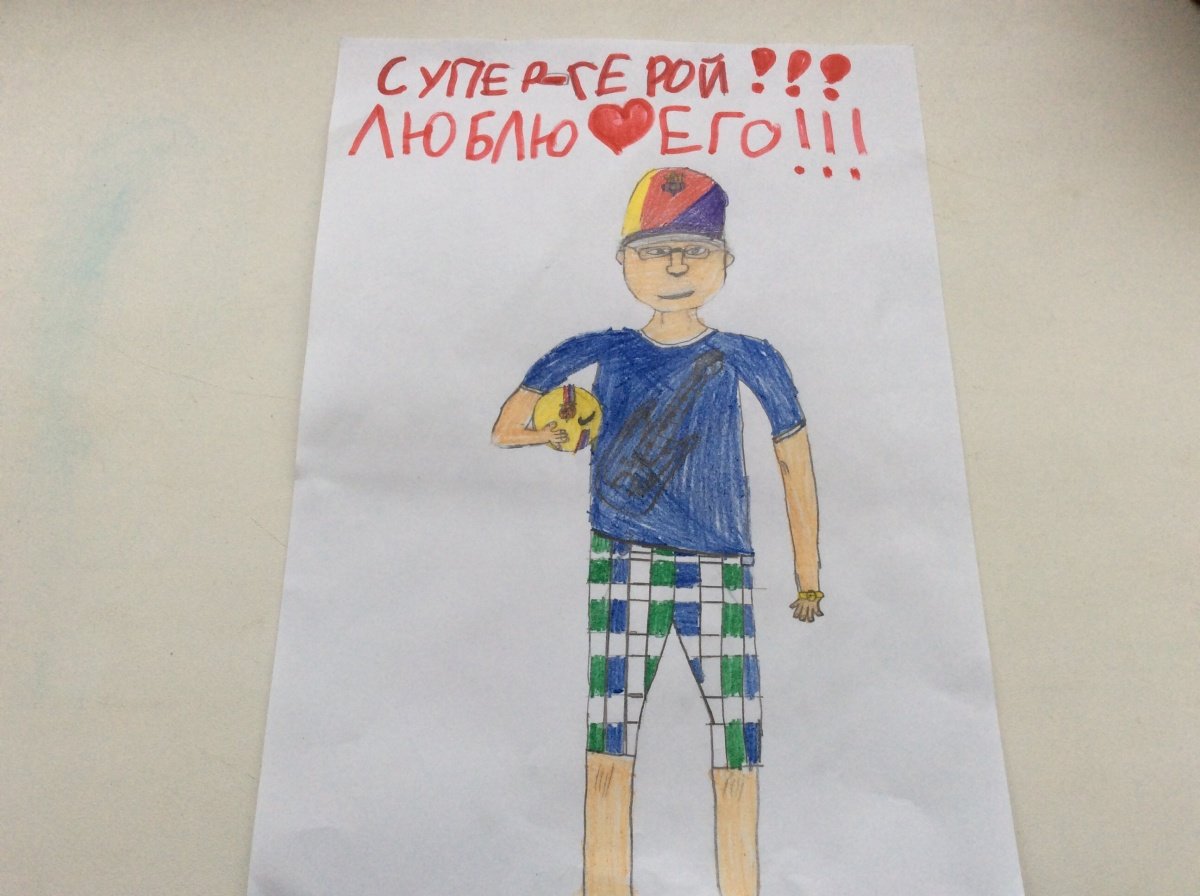 СУПЕР-ГЕРОЙ!!!
ЛЮБЛЮ ЕГО!!!